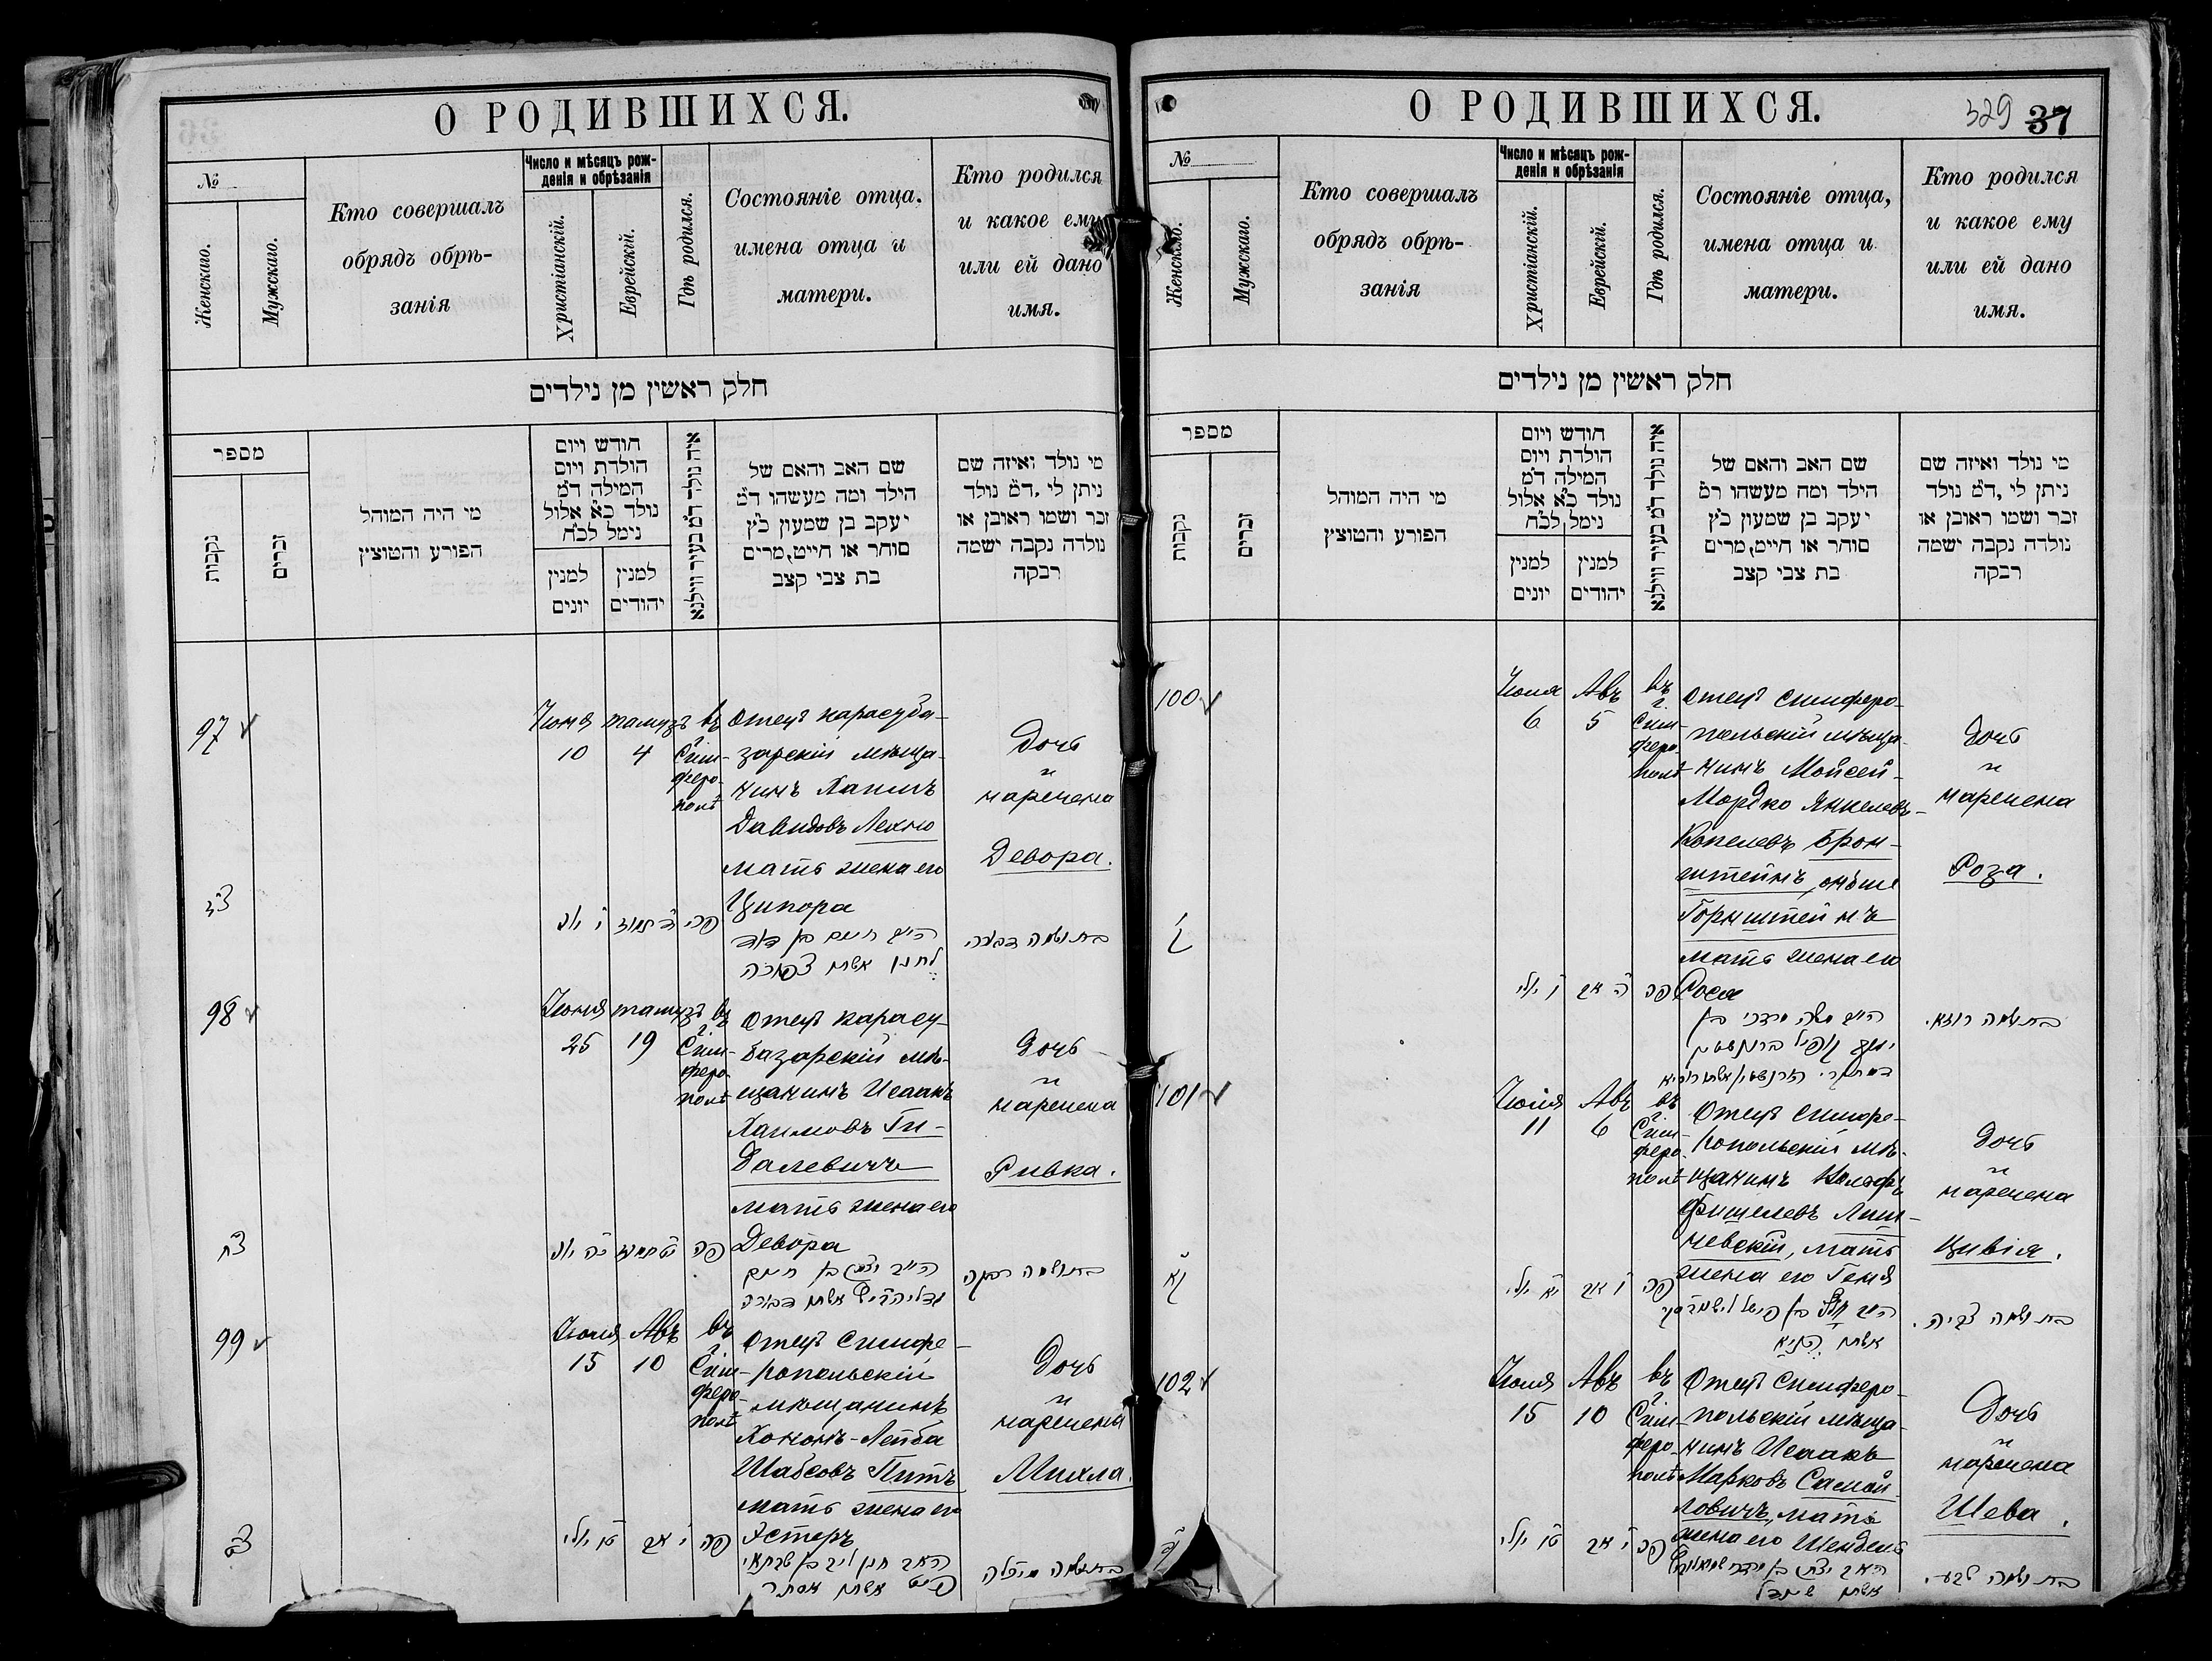 О РОДИВШИХСЯ.
№
Женскаго.
Мужскаго.
Кто совершалъ
обрядъ обрѣ-
занія
Число и мѣсяцъ рож-
денія и обрѣзанія
Христіанскій.
Еврейскій.
Гдѣ родился.
Состояніе отца.
имена отца и
матери.
Кто родился
и какое ему
или ей дано
имя.
חלק ראשין מן נילדים
מספר
נקבות
זכרים
מי היה המוהל
הפורע והמוצץ
חודש ויום
הולדת ויום
המילה ד״מ
נולד כ״א אלול
נימל לכ״ח
למנין
יונים
למנין
יהודים
איה נולד ד״מ בעיר ווילנא
שם האב והאם של
הילד ומה מעשהו ד״מ
יעקב בן שמעון כ״ץ
סוחר או חייט, מרים
בת צבי קצב
מי נולד ואיזה שם
ניתן לי, ד״מ נולד
זכר ושמו ראובן או
נולדה נקבה ישמה
רבקה
97
Іюня 10
тамузъ 4
въ г. Симферополѣ
Отецъ карасуба-
зарскій мѣща-
нинъ Хаимъ
Давидовъ Лехно
мать жена его
Ципора
Дочь
и
наречена
Девора.
צז
ד תמוז
פה
חיים בן דוד
לחנו אשתו צפורה
בת ושמה דבורה
98
Іюня 25
тамузъ 19
въ г. Симферополѣ
Отецъ карасу-
базарскій мѣ-
щанинъ Исаакъ
Хаимовъ Ги-
далевичъ
мать жена его
Девора
Дочь
и
наречена
Ривка.
צח
יט תמוז
פה
יצחק בן חיים
אשתו דבורה
בת ושמה רבקה
99
Іюля 15
Авъ 10
въ г. Симферополѣ
Отецъ симфе-
ропольскій
мѣщанинъ
Хононъ-Лейба
Шабсовъ Питъ
мать жена его
Эстеръ
Дочь
и
наречена
Михла.
צט
טו יולי
י אב
פה
חנן ליב בן שבתאי
פיט אשתו אסתר
בת ושמה מיכלה
О РОДИВШИХСЯ.
329 37
№
Женскаго.
Мужскаго.
Кто совершалъ
обрядъ обрѣ-
занія
Число и мѣсяцъ рож-
денія и обрѣзанія
Христіанскій.
Еврейскій.
Гдѣ родился.
Состояніе отца,
имена отца и
матери.
Кто родился
и какое ему
или ей дано
имя.
חלק ראשין מן נילדים
מספר
נקבות
זכרים
מי היה המוהל
הפורע והמוצץ
חודש ויום
הולדת ויום
המילה ד״מ
נולד כ״א אלול
נימל לכ״ח
למנין
יונים
למנין
יהודים
איה נולד ד״מ בעיר ווילנא
שם האב והאם של
הילד ומה מעשהו ר״מ
יעקב בן שמעון כ״ץ
סוחר או חייט, מרים
בת צבי קצב
מי נולד ואיזה שם
ניתן לי, ד״מ נולד
זכר ושמו ראובן או
נולדה נקבה ישמה
רבקה
100
Іюля 6
Авъ 5
въ г. Симферополѣ
Отецъ симферо-
польскій мѣща-
нинъ Мойсей-
Мордко Янкелевъ-
Копелевъ Брон-
штейнъ, онъ же
Горнштейнъ
мать жена его
Рося
Дочь
и
наречена
Роза.
ק
ו יולי
ה אב
פה
משה מרדכי בן
בת ושמה רוזא.
101
Іюля 11
Авъ 6
въ г. Симферополѣ
Отецъ симфе-
ропольскій мѣ-
щанинъ
Фишелевъ Лиш-
невскій, мать
жена его Геня
Дочь
и
наречена
Цивія.
קא
יא יולי
ו אב
פה
בן פישל
בת ושמה צביה.
102
Іюля 15
Авъ 10
въ г. Симферополѣ
Отецъ симферо-
польскій мѣща-
нинъ Исаакъ
Марковъ Самой-
ловичъ, мать
жена его Шейдель
Дочь
и
наречена
Шева.
טו יולי
י אב
פה
יצחק בן
אשתו
בת ושמה שבע.